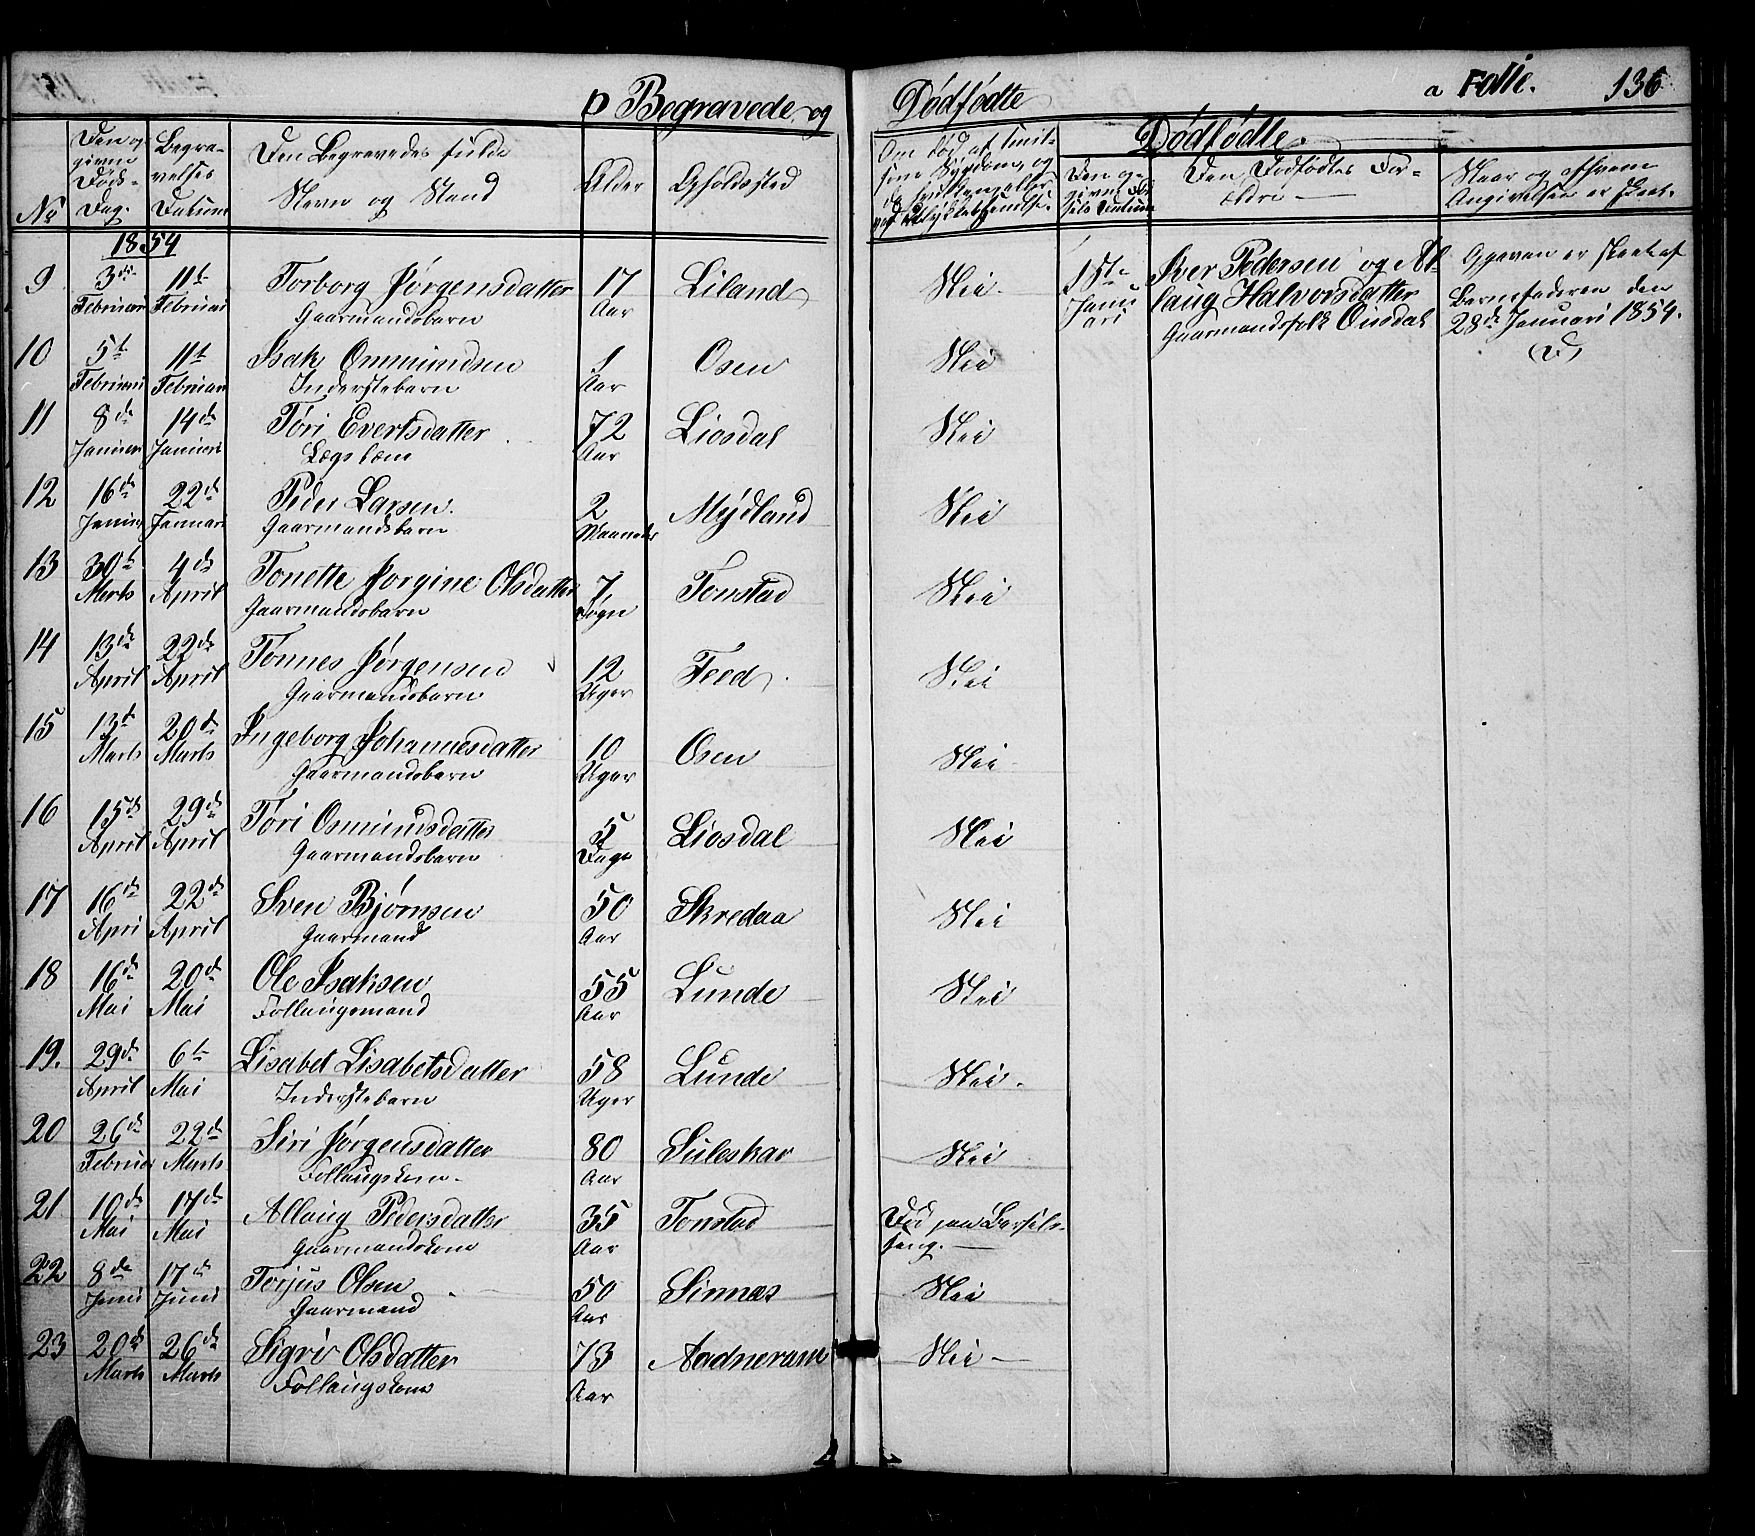 D Begravede og Dødfødte a Folie. 136
No
Den opgivne Døds-Dag.
Begravelses Datum
Den Begravedes fulde Navn og Stand
Alder
Opholdssted
Dødfødte.
Den Dødfødtes Forældre
Naar og af hvem Angivelsen er skeet.
1854
9 3die Februari 11te Februari Torborg Jørgensdatter Gaarmandsbarn 17 Aar Liland Nei
15te Januari Siver Pedersen og Allaug Halvorsdatter Gaarmandsfolk Ousdal
Opgaven er skeet af Barnefaderen den 28de Januari 1854. (D)
10 5te Februari 11te Februari Isak Ommundsen Inderstebarn 1 Aar Osen Nei
11 8de Januari 14de Januari Tøri Evertsdatter Lægslem 72 Aar Liosdal Nei
12 16de Januari 22de Januari Peder Larsen Gaarmandsbarn 2 Maaneder Mydland Nei
13 30te Marts 4de April Tonette Jorgine Olsdatter Gaarmandsbarn 7 Døgn Tonstad Nei
14 13de April 22de April Tønnes Jørgensen Gaarmandsbarn 12 Uger Feed Nei
15 13de Marts 20de Marts Ingeborg Johannesdatter Gaarmandsbarn 10 Uger Osen Nei
16 15de April 29de April Tøri Osmundsdatter Gaarmandsbarn 5 Dage Liosdal Nei
17 16de April 22de April Sven Bjørnsen Gaarmand 50 Aar Skredaa Nei
18 16de Mai 20de Mai Ole Isaksen Follaugsmand 55 Aar Lunde Nei
19. 29de April 6te Mai Lisabet Lisabetsdatter Inderstebarn 58 Uger Lunde Nei
20 26de Februar 22de Marts Siri Jørgensdatter Follaugskone 80 Aar Suleskar Nei
21 10de Mai 17de Mai Allaug Pedersdatter Gaarmandskone 35 Aar Tonstad Død paa Barselseng.
22 8de Juni 17de Juni Torjus Olsen Gaarmand 50 Aar Sinnæs Nei
23 20de Marts 26de Marts Sigri Olsdatter Follaugskone 73 Aar Aadneram Nei